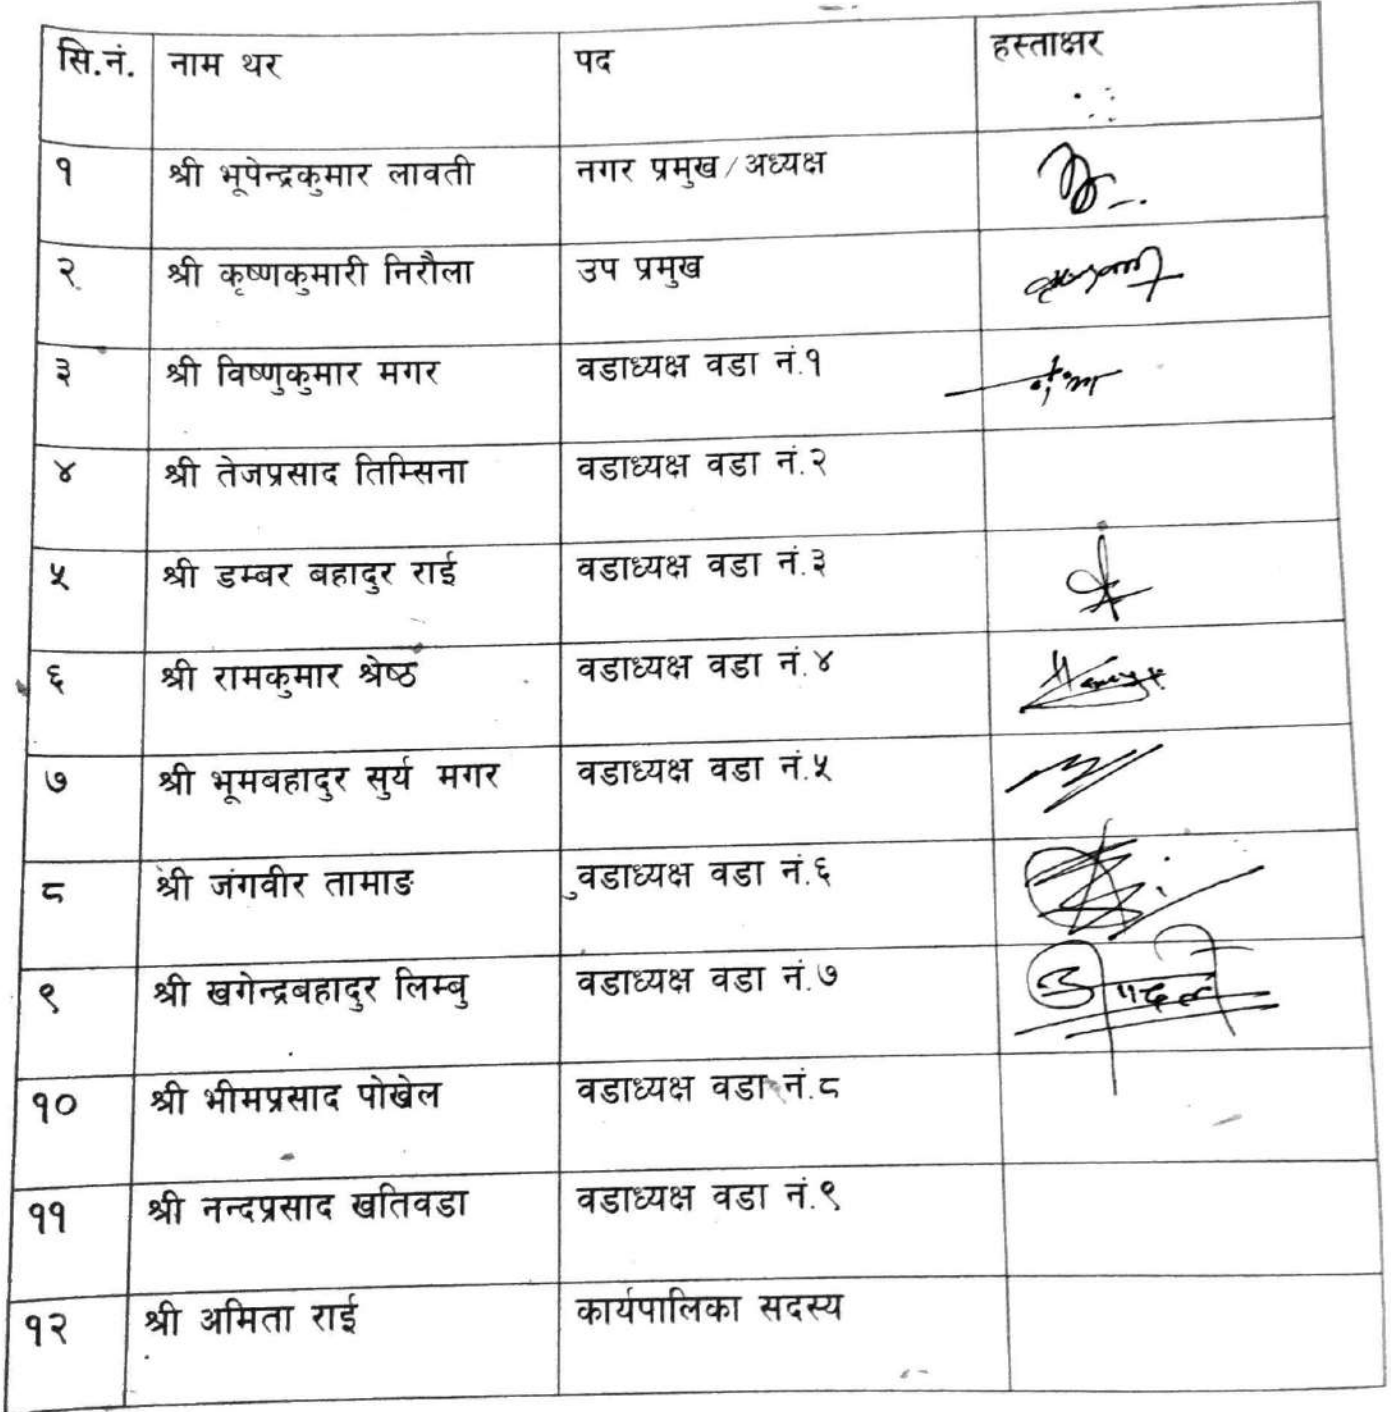 सि.नं. नाम थर पद हस्ताक्षर
१ श्री भूपेन्द्रकुमार लावती नगर प्रमुख/अध्यक्ष
२ श्री कृष्णकुमारी निरौला उप प्रमुख
३ श्री विष्णुकुमार मगर वडाध्यक्ष वडा नं.१
४ श्री तेजप्रसाद तिम्सिना वडाध्यक्ष वडा नं.२
५ श्री डम्बर बहादुर राई वडाध्यक्ष वडा नं.३
६ श्री रामकुमार श्रेष्ठ वडाध्यक्ष वडा नं.४
७ श्री भूमबहादुर सुर्य मगर वडाध्यक्ष वडा नं.५
८ श्री जंगवीर तामाङ वडाध्यक्ष वडा नं.६
९ श्री खगेन्द्रबहादुर लिम्बु वडाध्यक्ष वडा नं.७
१० श्री भीमप्रसाद पोखेल वडाध्यक्ष वडा नं.८
११ श्री नन्दप्रसाद खतिवडा वडाध्यक्ष वडा नं.९
१२ श्री अमिता राई कार्यपालिका सदस्य